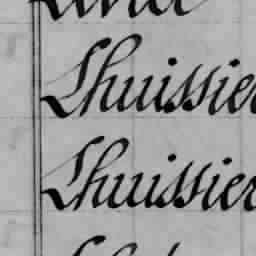 Lhuissier
Lhuissier